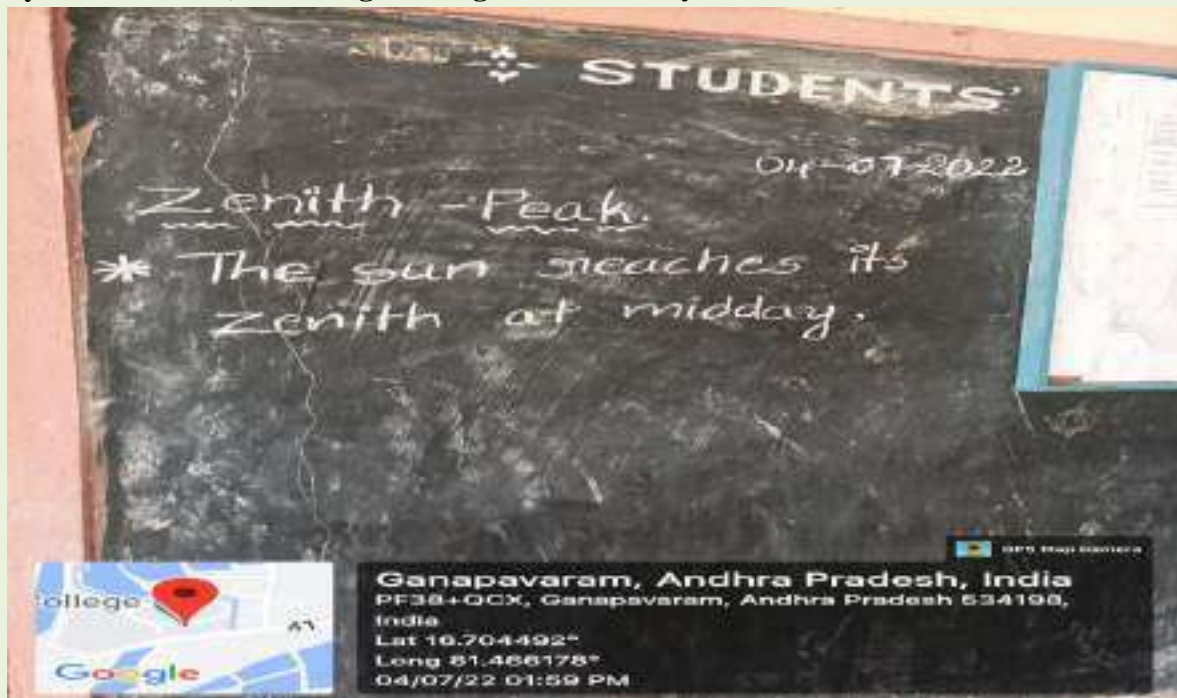 STUDENTS'
04-07-2022
Zenith - Peak.
* The sun reaches its
zenith at midday.
GPS Map Camera
Ganapavaram, Andhra Pradesh, India
PF38+QCX, Ganapavaram, Andhra Pradesh 534198,
India
Lat 16.704492°
Long 81.466178°
04/07/22 01:59 PM
ollege
Google